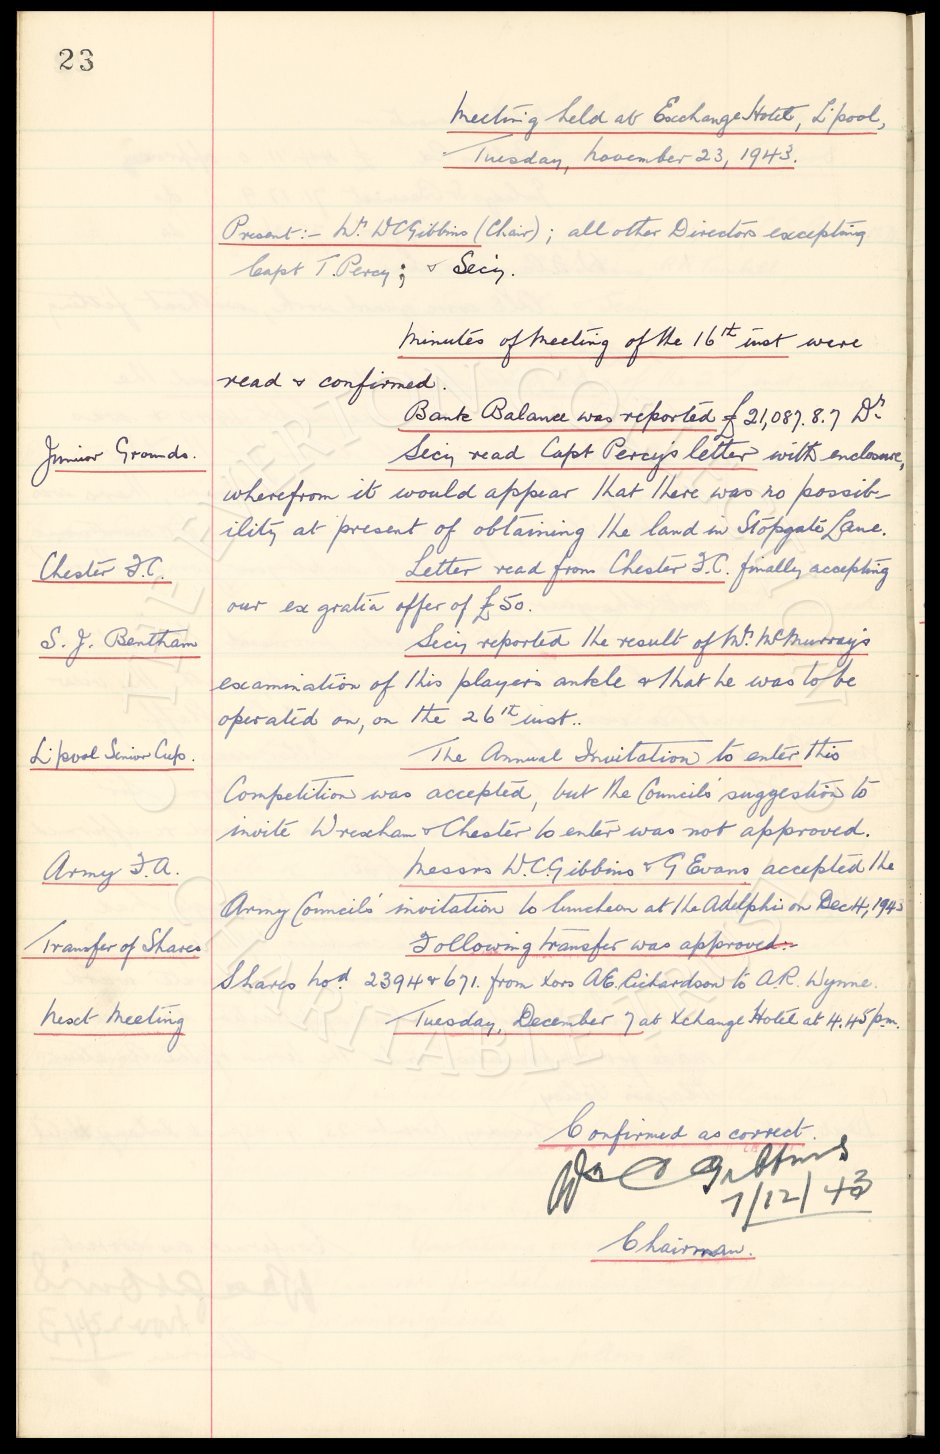 23
Meeting held at Exchange Hotel, L'pool,
Tuesday, November 23, 1943.
Present:- Mr. W C Gibbins (Chair); all other Directors excepting
Capt T. Percy; & Secy.
Minutes of Meeting of the 16th inst were
read & confirmed.
Bank Balance was reported £21,087.8.7 Dr.
Junior Grounds. Secy read Capt Percy's letter with enclosure,
wherefrom it would appear that there was no possib-
ility at present of obtaining the land in Stopgate Lane.
Chester F.C. Letter read from Chester F.C. finally accepting
our ex gratia offer of £50.
S. J. Bentham Secy reported the result of Mr. McMurray's
examination of this player's ankle & that he was to be
operated on, on the 26th inst..
L'pool Senior Cup. The Annual Invitation to enter this
Competition was accepted, but the Council's suggestion to
invite Wrexham & Chester to enter was not approved.
Army F.A. Messrs W.C Gibbins & G Evans accepted the
Army Council's invitation to luncheon at the Adelphi on Dec 4, 1943
Transfer of Shares Following transfer was approved:-
Shares Nos. 2394 & 671. from Xors A E. Richardson to A.R. Wynne.
Next Meeting Tuesday, December 7 at Xchange Hotel at 4.45 p.m.
Confirmed as correct.
Wm C Gibbins
7/12/43
Chairman.
THE EVERTON COLLECTION CHARITABLE TRUST